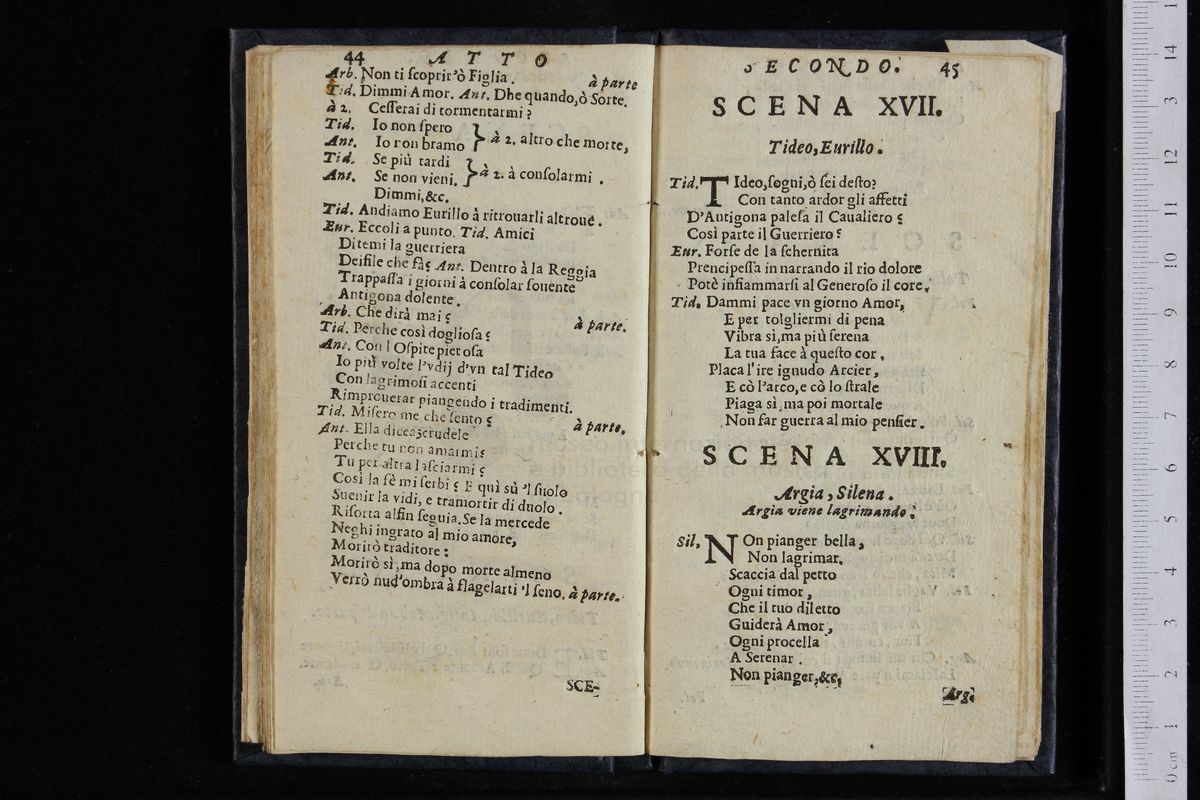 44 ATTO
Arb. Non ti ſcoprir'ò Figlia. à parte
Tid. Dimmi Amor. Ant. Dhe quando, ò Sorte.
à 2. Ceſſerai di tormentarmi?
Tid. Io non ſpero
Ant. Io non bramo } à 2. altro che morte,
Tid. Se più tardi
Ant. Se non vieni. } à 2. à conſolarmi.
Dimmi, &c.
Tid. Andiamo Eurillo à ritrouarli altroue.
Eur. Eccoli a punto. Tid. Amici
Ditemi la guerriera
Deifile che fà? Ant. Dentro à la Reggia
Trappaſſa i giorni à conſolar ſouente
Antigona dolente.
Arb. Che dirà mai? à parte.
Tid. Perche così doglioſa?
Ant. Con l Oſpite pietoſa
Io più volte l'vdij d'vn tal Tideo
Con lagrimoſi accenti
Rimprouerar piangendo i tradimenti.
Tid. Miſero me che ſento? à parte.
Ant. Ella dicea; crudele
Perche tu non amarmi?
Tu per altra laſciarmi?
Così la fè mi ſerbi? E quì sù 'l ſuolo
Suenir la vidi, e tramortir di duolo.
Riſorta alfin ſeguia. Se la mercede
Neghi ingrato al mio amore,
Morirò traditore:
Morirò sì, ma dopo morte almeno
Verrò nud'ombra à flagelarti 'l ſeno. à parte.
SCE-
SECONDO. 45
SCENA XVII.
Tideo, Eurillo.
Tid. TIdeo, ſogni, ò ſei deſto?
Con tanto ardor gli affetti
D'Antigona paleſa il Caualiero?
Così parte il Guerriero?
Eur. Forſe de la ſchernita
Prencipeſſa in narrando il rio dolore
Potè infiammarſi al Generoſo il core.
Tid. Dammi pace vn giorno Amor,
E per tolgliermi di pena
Vibra sì, ma più ſerena
La tua face à queſto cor.
Placa l'ire ignudo Arcier,
E cò l'arco, e cò lo ſtrale
Piaga sì, ma poi mortale
Non far guerra al mio penſier.
SCENA XVIII.
Argia, Silena.
Argia viene lagrimando.
Sil. NOn pianger bella,
Non lagrimar.
Scaccia dal petto
Ogni timor,
Che il tuo diletto
Guiderà Amor,
Ogni procella
A Serenar.
Non pianger, &c.
Arg.